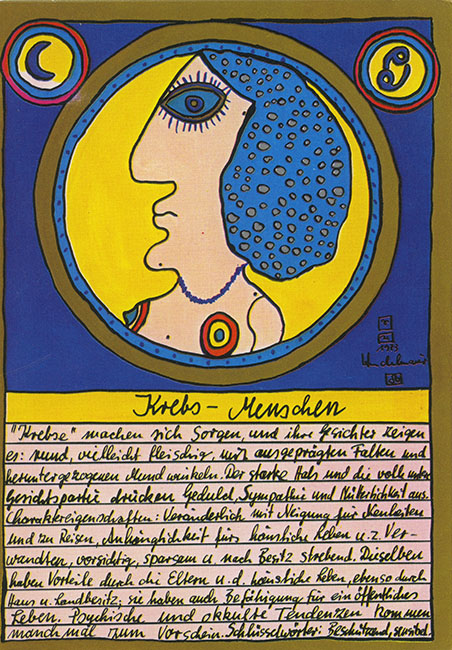 1973
Krebs - Menschen
"Krebse" machen sich Sorgen, und ihre Gesichter zeigen
es: rund, vielleicht fleischig mit ausgeprägten Falten und
heruntergezogenen Mundwinkeln. Der starke Hals und die volle untere
Gesichtspartie drücken Geduld, Sympathie und Mütterlichkeit aus.
Charaktereigenschaften: Veränderlich mit Neigung für Neuheiten
und zu Reisen, Anhänglichkeit fürs häusliche Leben u. z. Ver-
wandten, vorsichtig, sparsam u. nach Besitz strebend. Dieselben
haben Vorteile durch die Eltern u. d. häusliche Leben, ebenso durch
Haus u. Landbesitz; sie haben auch Befähigung für ein öffentliches
Leben. Psychische und okkulte Tendenzen kommen
manchmal zum Vorschein. Schlüsselwörter: Beschützend, sensibel.